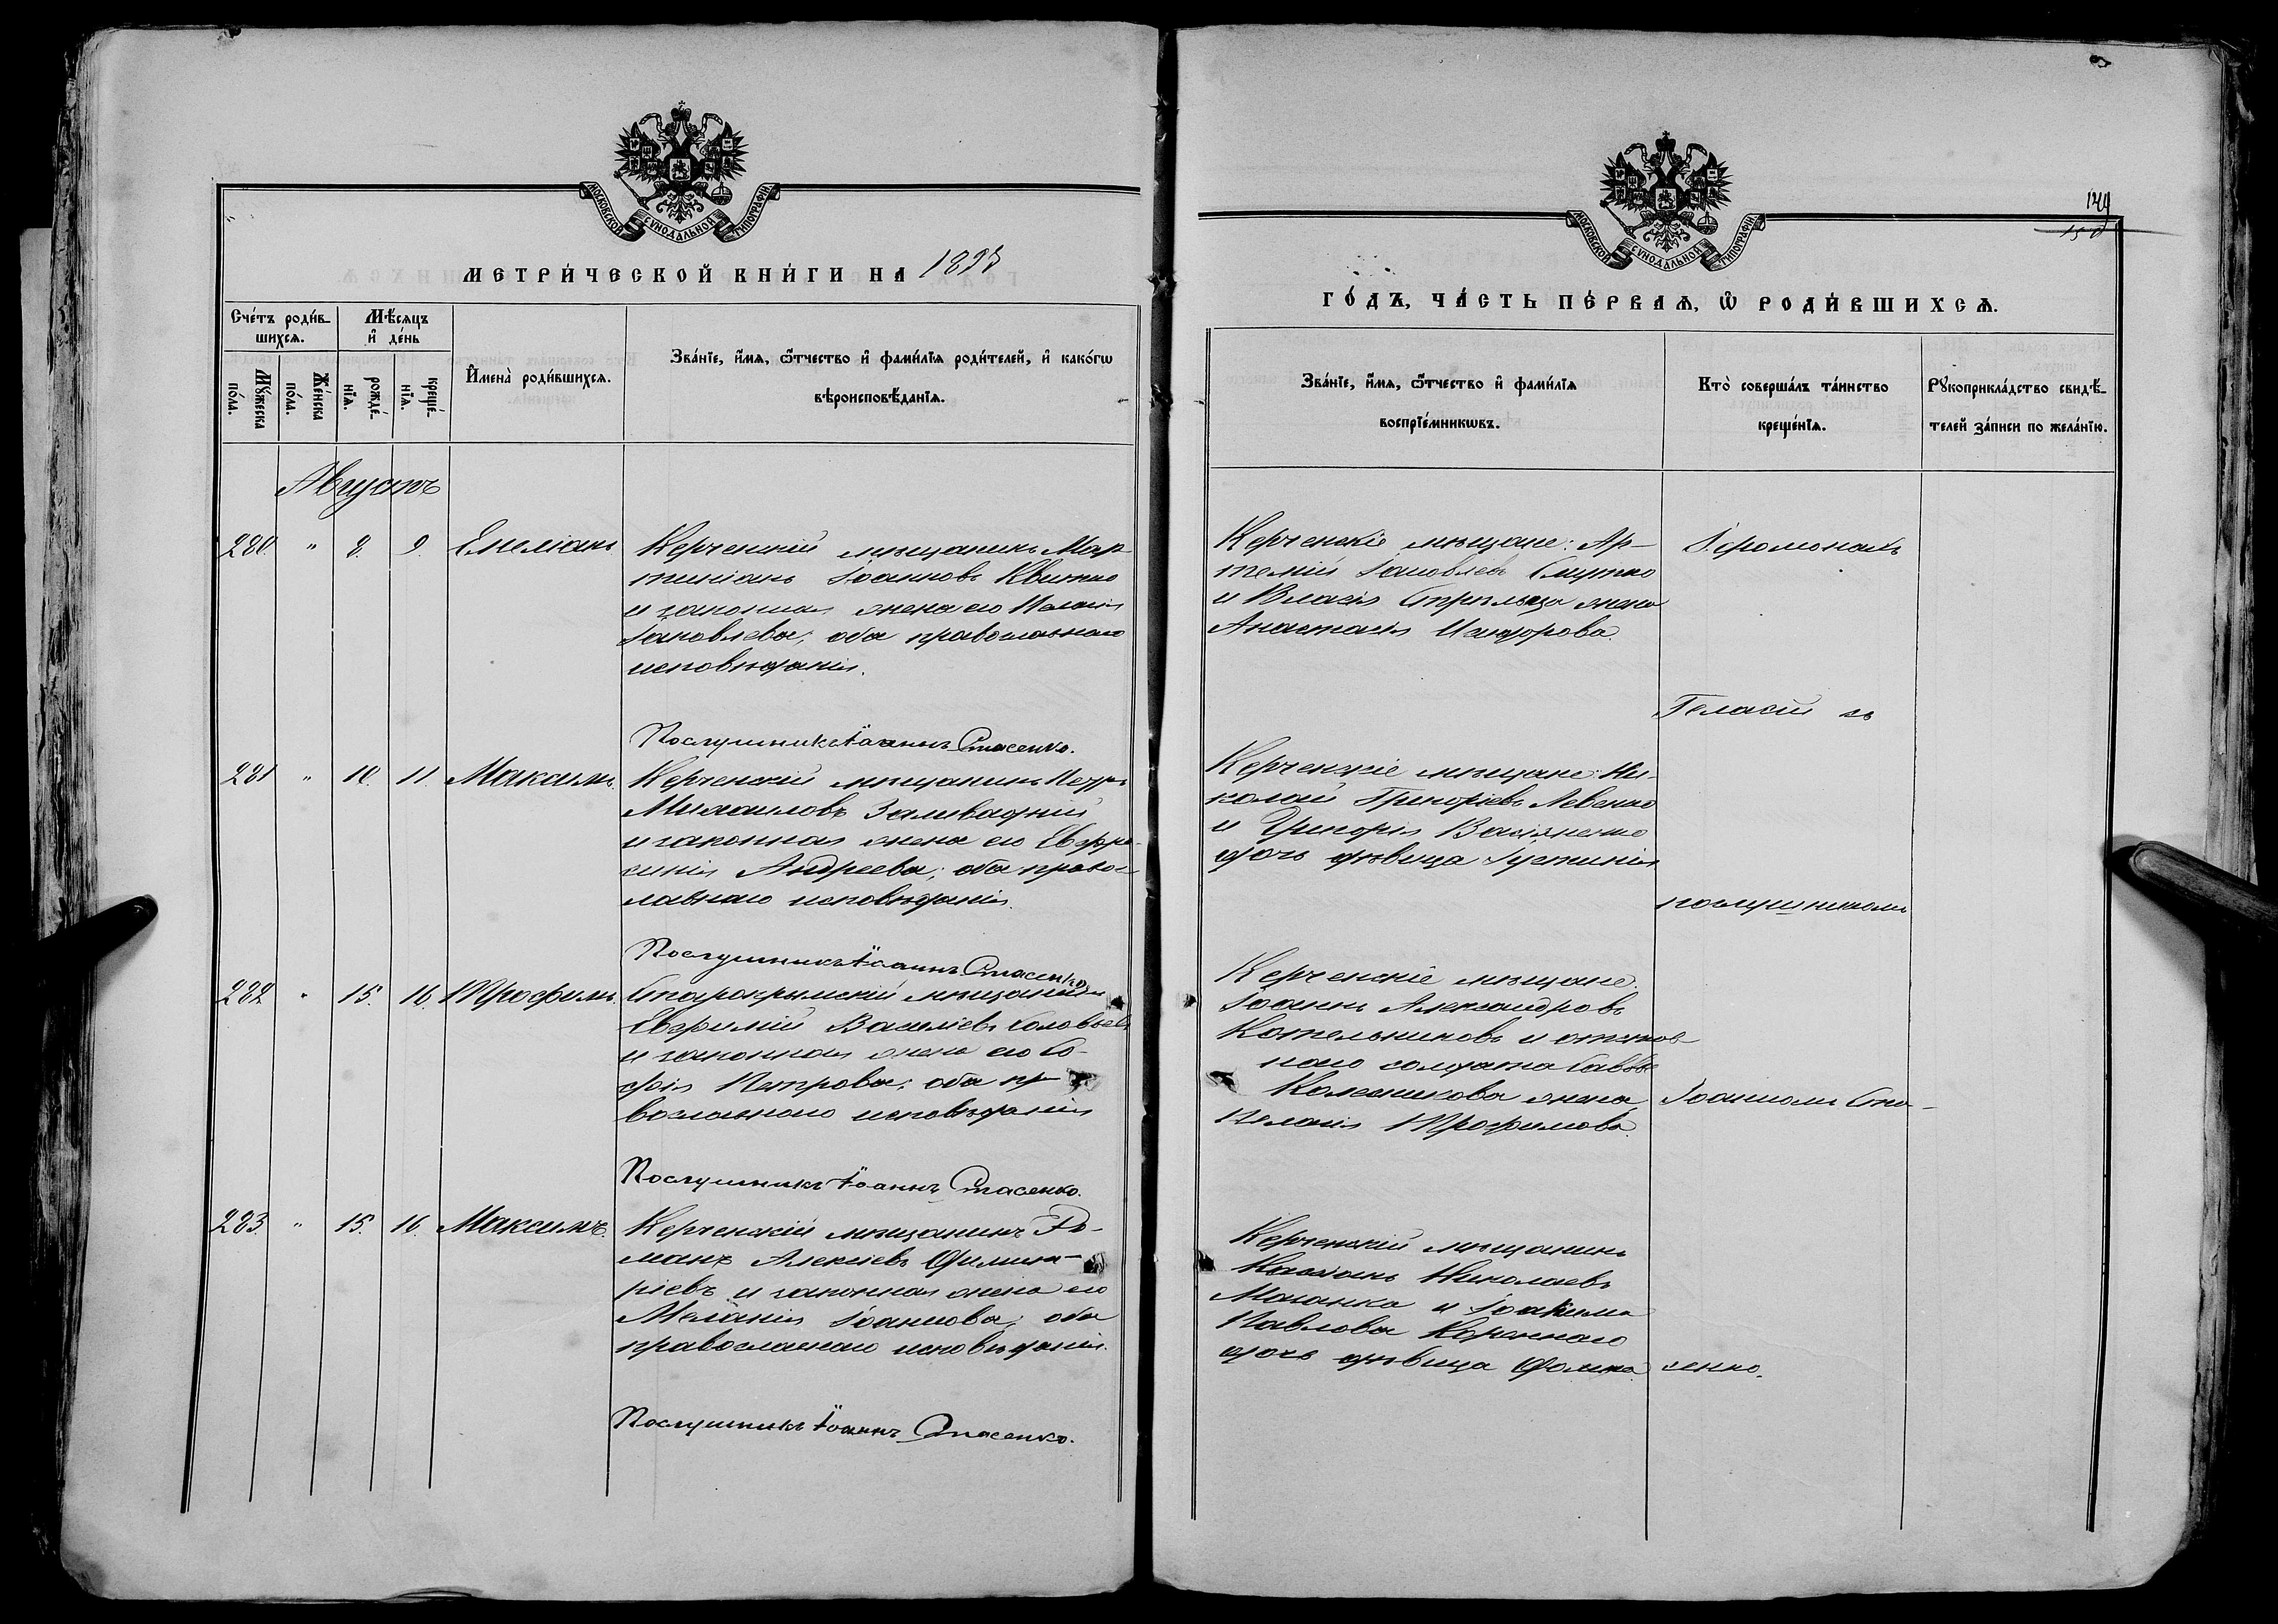 МОСКОВСКОЙ СУНОДАЛЬНОЙ ТИПОГРАФІИ
МЕТРИ́ЧЕСКОЙ КНИ́ГИ НА 189
Сче́тъ роди́в-
шихсѧ.
Мѣ́сяцъ
и҆ де́нь
Мꙋ́жеска
по́ла.
Же́нска
по́ла.
рожде́-
нїѧ.
креще́-
нїѧ.
И҆мена̀ роди́вшихсѧ.
Зва́нїе, и҆́мѧ, ѻ҆́тчество и҆ фами́лїѧ роди́телей, и҆ како́гѡ
вѣроисповѣ́данїѧ.
Августъ
280 " 8. 9. Емеліанъ
Керченскій мѣщанинъ Мар-
тиніанъ Іоанновъ Квитко
и законная жена его Пелагія
Іаковлева; оба православнаго
исповѣданія.
Послушникъ Іоаннъ Стасенко.
281 " 10. 11. Максимъ.
Керченскій мѣщанинъ Петръ
Михаиловъ Заливадній
и законная жена его Евфро-
синія Андреева; оба правос-
лавнаго исповѣданія.
Послушникъ Іоаннъ Стасенко
282 " 15. 16. Трофимъ.
Старокрымскій мѣщанинъ
Евфимій Василіевъ Соловьевъ
и законная жена его Со-
фія Петрова; оба пра-
вославнаго исповѣданія
Послушникъ Іоаннъ Стасенко.
283. " 15. 16. Максимъ.
Керченскій мѣщанинъ Ро-
манъ Алексіевъ
ріевъ и законная жена его
Меланія Іоаннова; оба
православнаго исповѣданія.
Послушникъ Іоаннъ Стасенко.
149
150
МОСКОВСКОЙ СУНОДАЛЬНОЙ ТИПОГРАФІИ
ГО́ДЪ, ЧА́СТЬ ПЕ́РВАѦ, Ѡ҆ РОДИ́ВШИХСѦ.
Зва́нїе, и҆́мѧ, ѻ҆́тчество и҆ фами́лїѧ
воспрїе́мникѡвъ.
Кто̀ соверша́лъ та́инство
креще́нїѧ.
Рꙋкоприкла́дство свидѣ́-
телей за́писи по жела́нїю.
Керченскіе мѣщане: Ар-
темій Іаковлевъ Смутко
и Власія жена
Анастасія Исидорова.
Керченскіе мѣщане: Ни-
колай Григоріевъ Левенко
и Григорія
дочь дѣвица Іустинія
Керченскіе мѣщане.
Іоаннъ Александровъ
Котельниковъ и отстав-
наго солдата Саввы
Колесникова жена
Пелагія Трофимова.
Керченскій мѣщанинъ
Касіанъ Николаевъ
и Іоакима
Павлова
дочь дѣвица
Іеромонахъ
Геласій съ
послушникомъ
Іоанномъ Ста-
сенко.